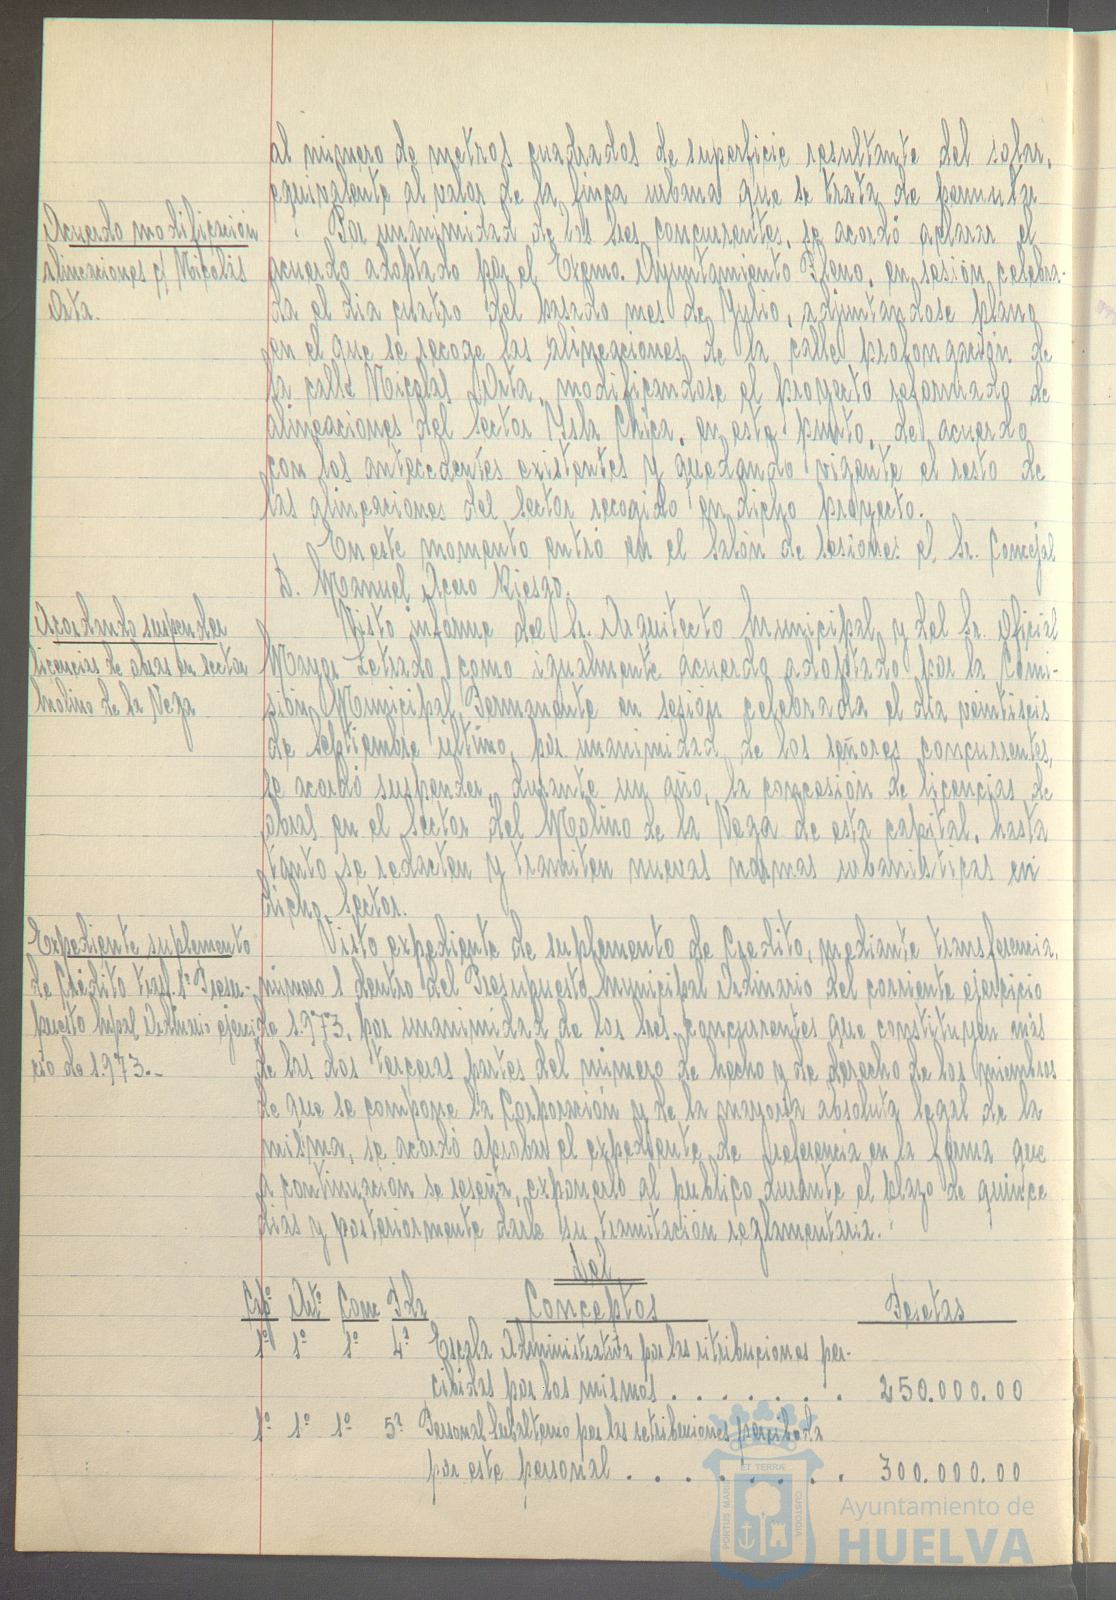 al número de metros cuadrados de superficie resultante del solar,
equivalente al valor de la finca urbana que se trata de permutar
Acuerdo modificación
alineaciones c/ Nicolás
Orta.
Por unanimidad de los Sres concurrentes, se acordó aclarar el
acuerdo adoptado por el Excmo. Ayuntamiento Pleno, en sesión celebra-
da el dia cuatro del pasado mes de Julio, adjuntandose plano
en el que se recoge las alineaciones de la calle prolongación de
la calle Nicolás Orta, modificandose el proyecto reformado de
alineaciones del Sector Isla Chica, en este punto, de acuerdo
con los antecedentes existentes y quedando vigente el resto de
las alineaciones del Sector recogido en dicho proyecto.
En este momento entró en el Salón de Sesiones el Sr. Concejal
D. Manuel Acero Riesgo.
Acordando suspender
licencias de obras en sector
Molino de la Vega
Visto informe del Sr. Arquitecto Municipal y del Sr. Oficial
Mayor Letrado, como igualmente acuerdo adoptado por la Comi-
sión Municipal Permanente en sesión celebrada el día veintiseis
de Septiembre último, por unanimidad de los señores concurrentes,
se acordó suspender, durante un año, la concesión de licencias de
obras en el Sector del Molino de la Vega de esta capital, hasta
tanto se redacten y tramiten nuevas normas urbanisticas en
dicho Sector.
Expediente suplemento
de Crédito transf. 1ª Presu-
puesto Mpal. Ordinario ejerci-
cio de 1.973.-
Visto expediente de suplemento de Credito, mediante transferencia,
número 1 dentro del Presupuesto Municipal Ordinario del corriente ejercicio
de 1.973, por unanimidad de los Sres. concurrentes que constituyen más
de las dos terceras partes del número de hecho y de derecho de los miembros
de que se compone la Corporación y de la mayoría absoluta legal de la
misma, se acordó aprobar el expediente de referencia en la forma que
a continuación se reseña, exponerlo al público durante el plazo de quince
dias y posteriormente darle su tramitación reglamentaria.
del
Cap.º Art.º Conc Pda Conceptos Pesetas
1º 1º 1º 4ª Escala Administrativa por las retribuciones per-
cibidas por los mismos . . . . . . . 250.000.00
1º 1º 1º 5ª Personal Subalterno por las retribuciones percibida
por este personal . . . . . . . . 300.000.00
ET TERRÆ
PORTUS MARIS
CUSTODIA
Ayuntamiento de
HUELVA